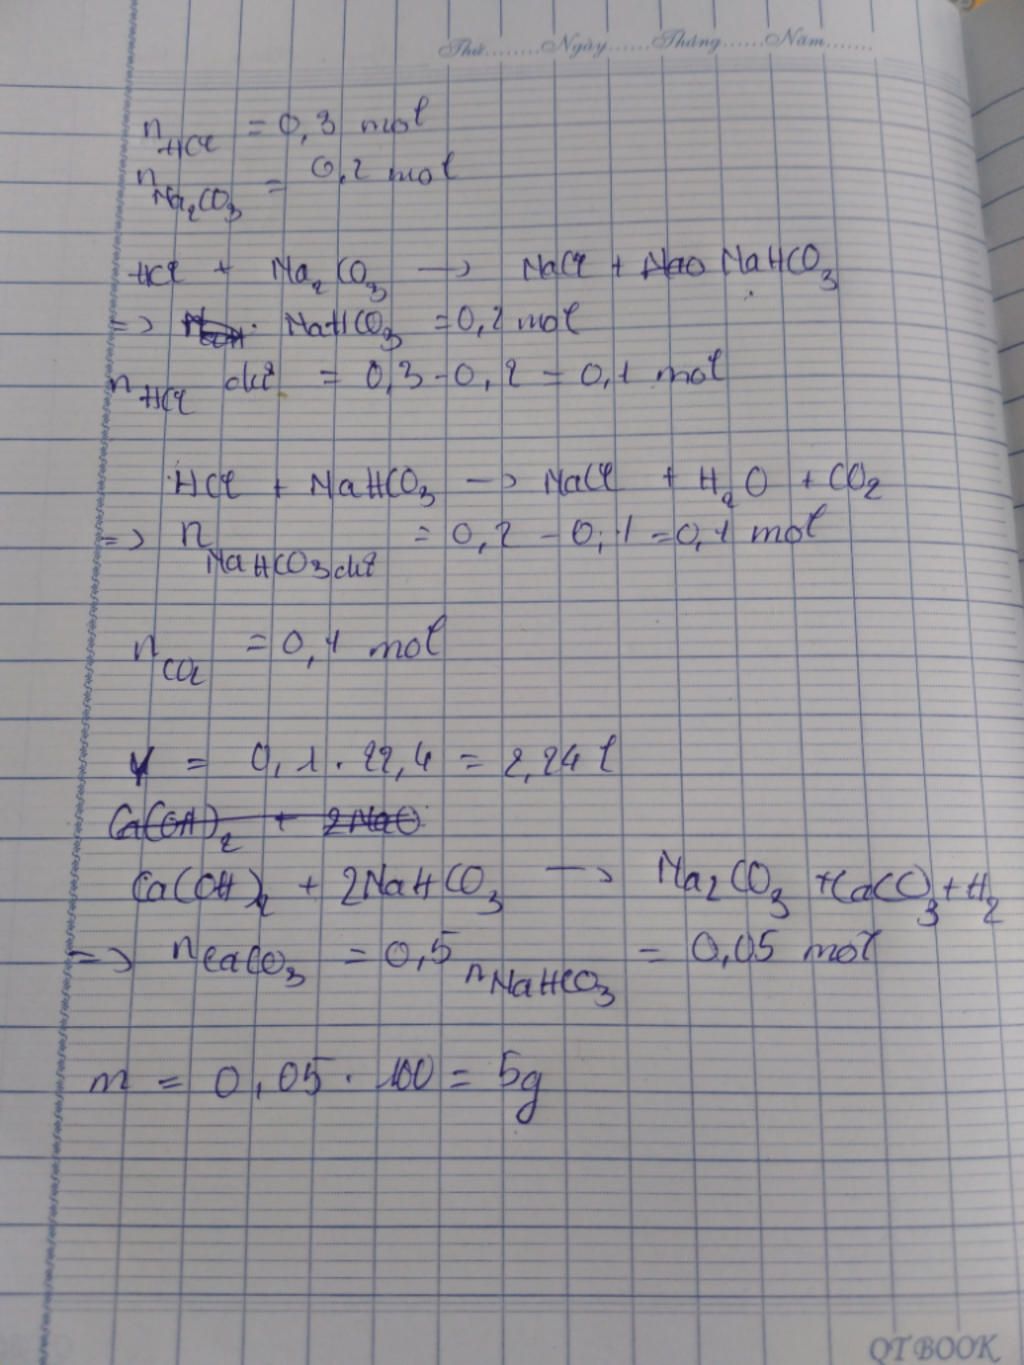 Thứ........Ngày......Tháng......Năm.......
n HCl = 0,3 mol
n Na₂CO₃ = 0,2 mol
HCl + Na₂CO₃ → NaCl + NaHCO₃
=> NaHCO₃ = 0,2 mol
n HCl dư = 0,3 - 0,2 = 0,1 mol
HCl + NaHCO₃ → NaCl + H₂O + CO₂
=> n NaHCO₃ dư = 0,2 - 0,1 = 0,1 mol
n CO₂ = 0,1 mol
V = 0,1 . 22,4 = 2,24 l
Ca(OH)₂ + 2NaO
Ca(OH)₂ + 2NaHCO₃ → Na₂CO₃ + CaCO₃ + H₂
=> n CaCO₃ = 0,5 n NaHCO₃ = 0,05 mol
m = 0,05 . 100 = 5g
QTBOOK